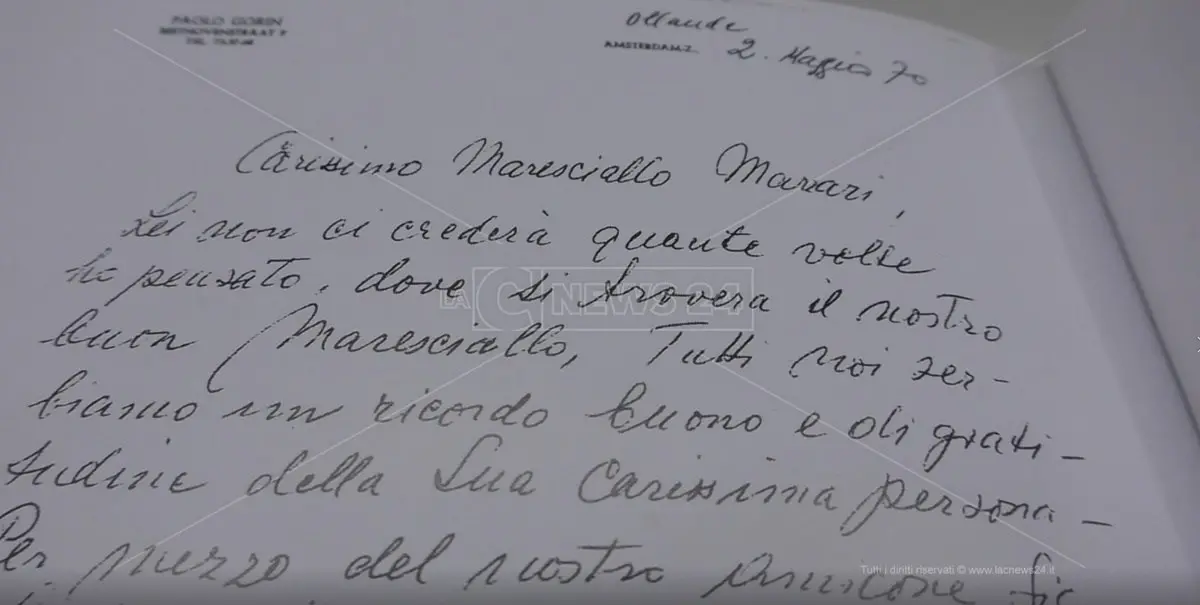 PAOLO GORIN
BEETHOVENSTRAAT 9
TEL.
Ollande
AMSTERDAM-Z. 2. Maggio 70
Carissimo Maresciallo Marrari,
Lei non ci crederà quante volte
ho pensato, dove si trovera il nostro
buon Maresciallo, Tutti noi ser-
biamo un ricordo buono e di grati-
tudine della Sua Carissima persona-
Per mezzo del nostro amicone
LA C NEWS 24
Tutti i diritti riservati © www.lacnews24.it